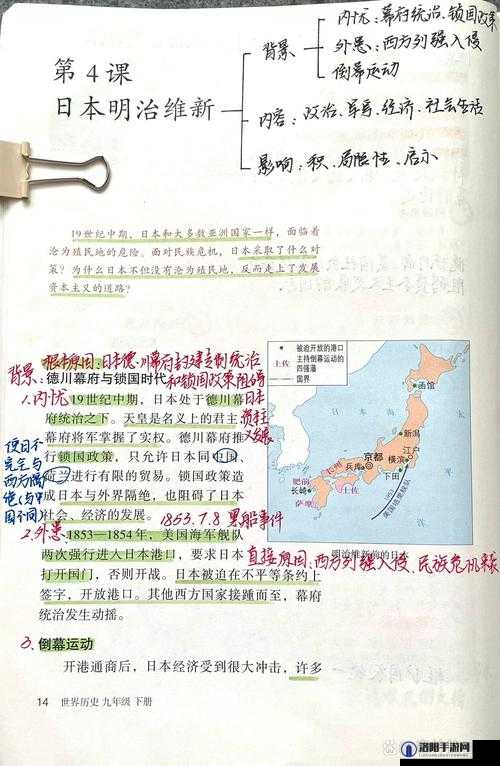 第4课
日本明治维新
背景
内忧:幕府统治、锁国政策
外患:西方列强入侵
倒幕运动
内容:政治、军事、经济、社会生活
影响:积、局限性、启示
19世纪中期,日本和大多数亚洲国家一样,面临着
沦为殖民地的危险。面对民族危机,日本采取了什么对
策?为什么日本不但没有沦为殖民地,反而走上了发展
资本主义的道路?
根本原因:日本德川幕府封建专制统治
和锁国政策阻碍
日本
资本主义
发展
背景:
德川幕府与锁国时代
1.内忧
19世纪中期,日本处于德川幕
府统治之下。天皇是名义上的君主,
幕府将军掌握了实权。德川幕府推
行锁国政策,只允许日本同中国、
荷兰进行有限的贸易。锁国政策造
成日本与外界隔绝,也阻碍了日本
社会、经济的发展。
使日不
完全与
西方隔
绝(与中
国不同)
1853.7.8 黑船事件
2.外患
1853—1854年,美国海军舰队
两次强行进入日本港口,要求日本
打开国门,否则开战。日本被迫在不平等条约上
签字,开放港口。其他西方国家接踵而至,幕府
统治发生动摇。
直接原因:西方列强入侵、民族危机
3.倒幕运动
开港通商后,日本经济受到很大冲击,许多
被迫开放的港口
土佐 主持倒幕运动的
四强藩
国界
函馆
日本海
新潟
江户
京都
横滨
兵库
下田
长州
肥前
长崎
土佐
萨摩
美国培里舰队
明治维新前的日本
14 世界历史 九年级 下册
洛阳手游网